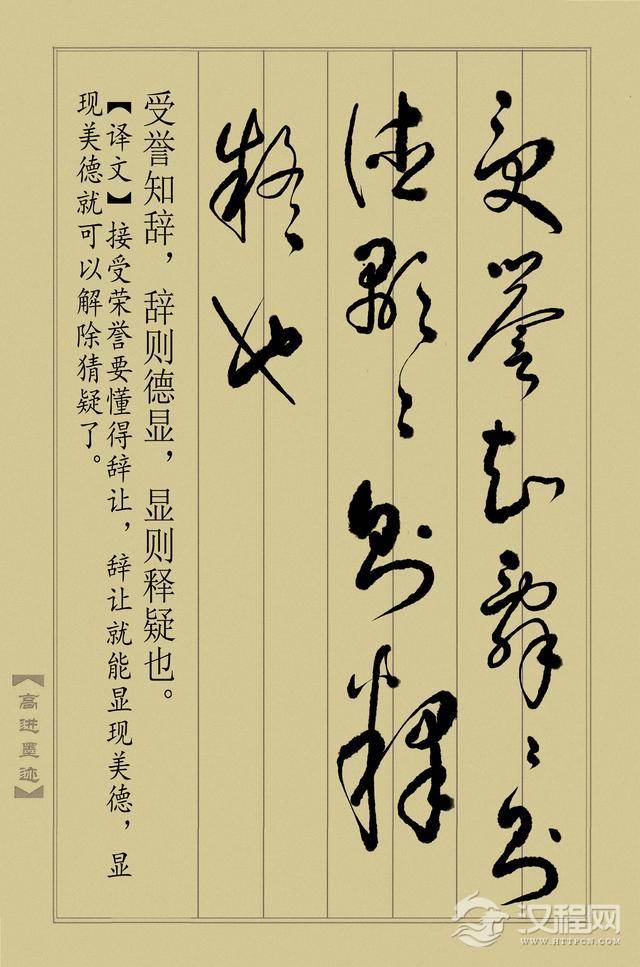 受誉知辞〻则
德显〻则释
疑也
受誉知辞，辞则德显，显则释疑也。
【译文】接受荣誉要懂得辞让，辞让就能显现美德，显
现美德就可以解除猜疑了。
【高进墨迹】
汉程网
WWW.HTTPCN.COM